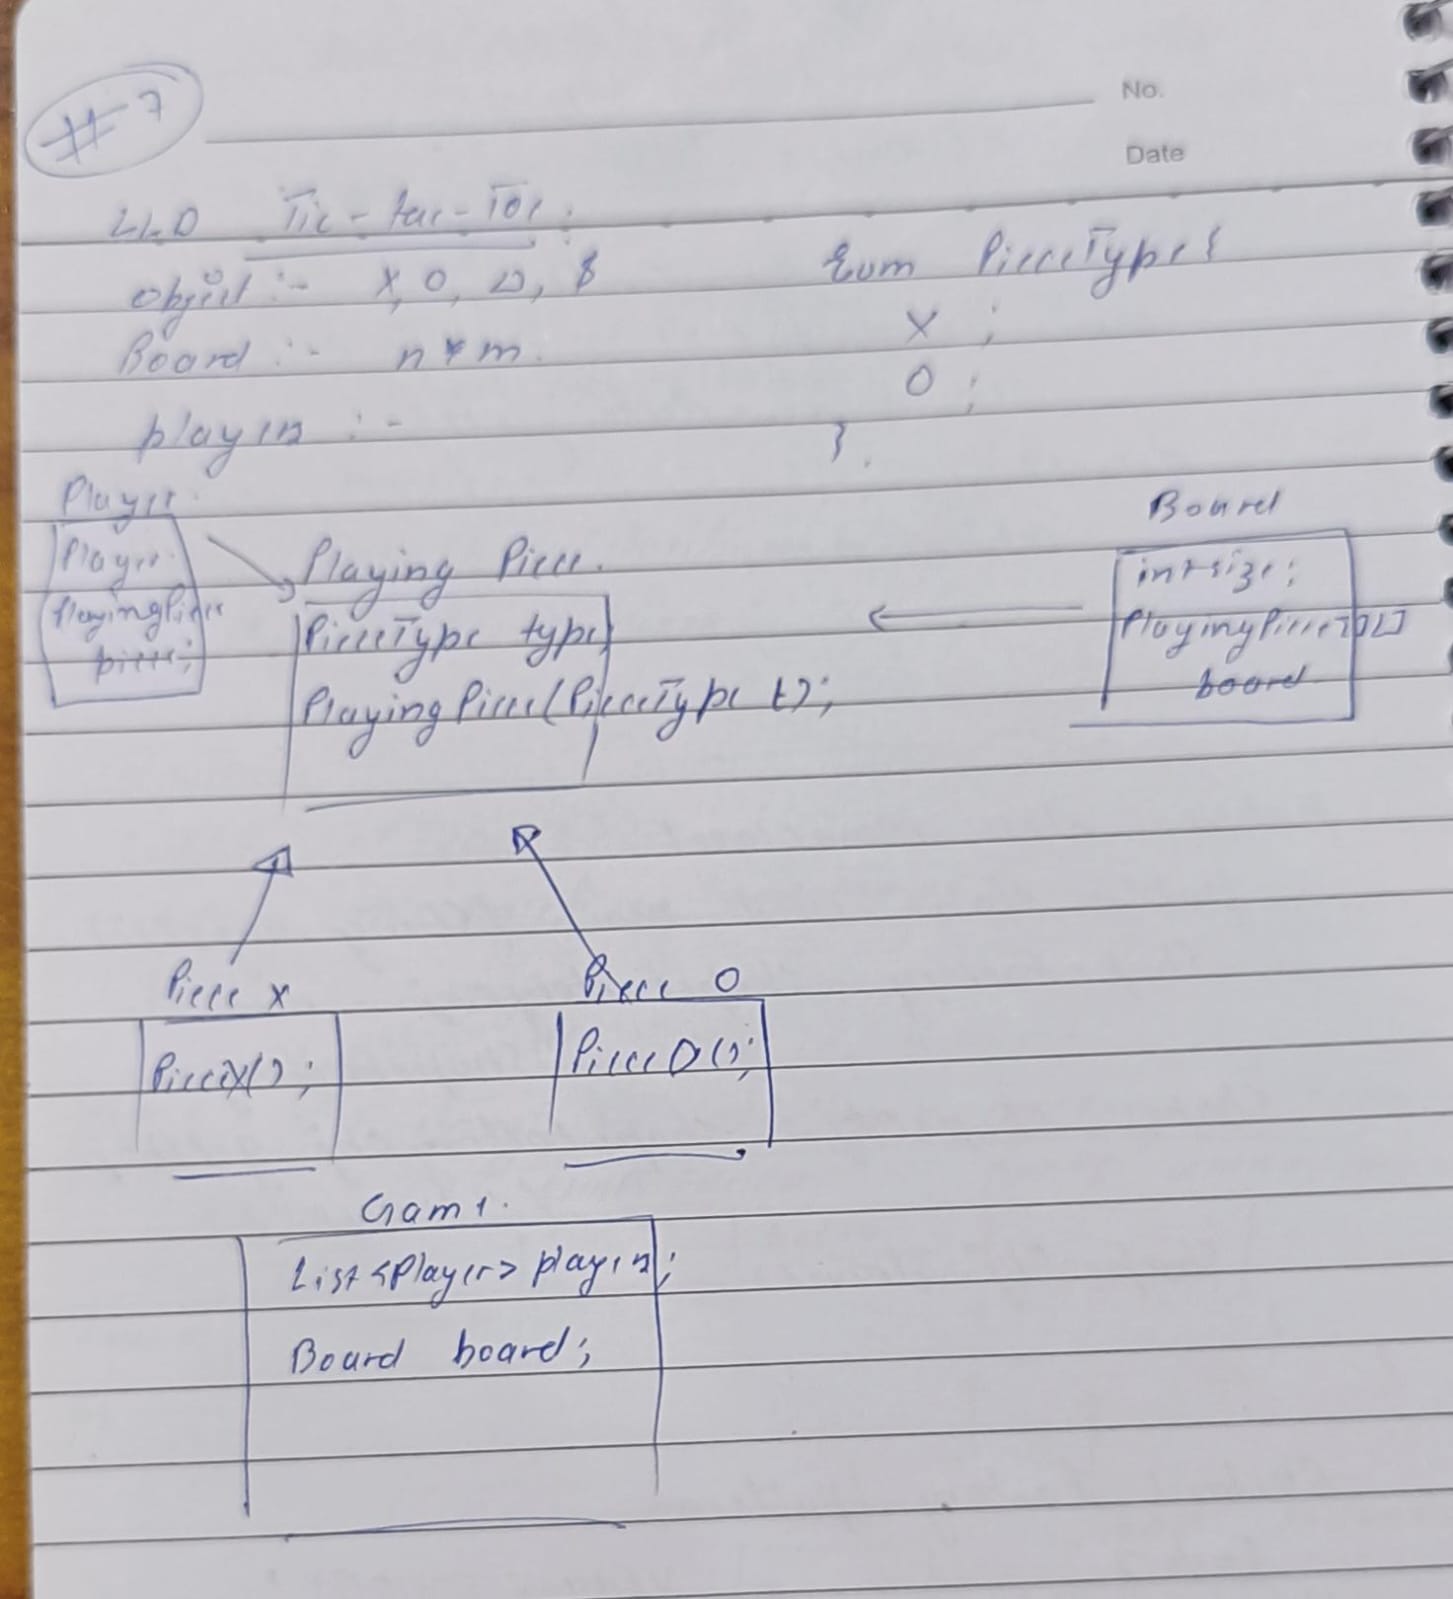 #7
No.
Date
LLD Tic-tac-Toe:
Object :- X, O, △, $
Enum PieceType {
X ;
O ;
}.
Board :- n*m.
player :-
Player
Player
PlayingPiece
piece;
Playing Piece.
PieceType type;
Playing Piece (PieceType t);
Board
int size;
PlayingPiece[][]
board
Piece X
PieceX();
Piece O
PieceO();
Game.
List<Player> player;
Board board;